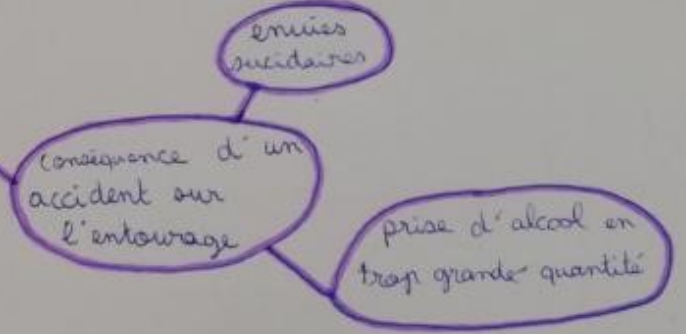 envies
suicidaires
conséquence d'un
accident sur
l'entourage
prise d'alcool en
trop grande quantité